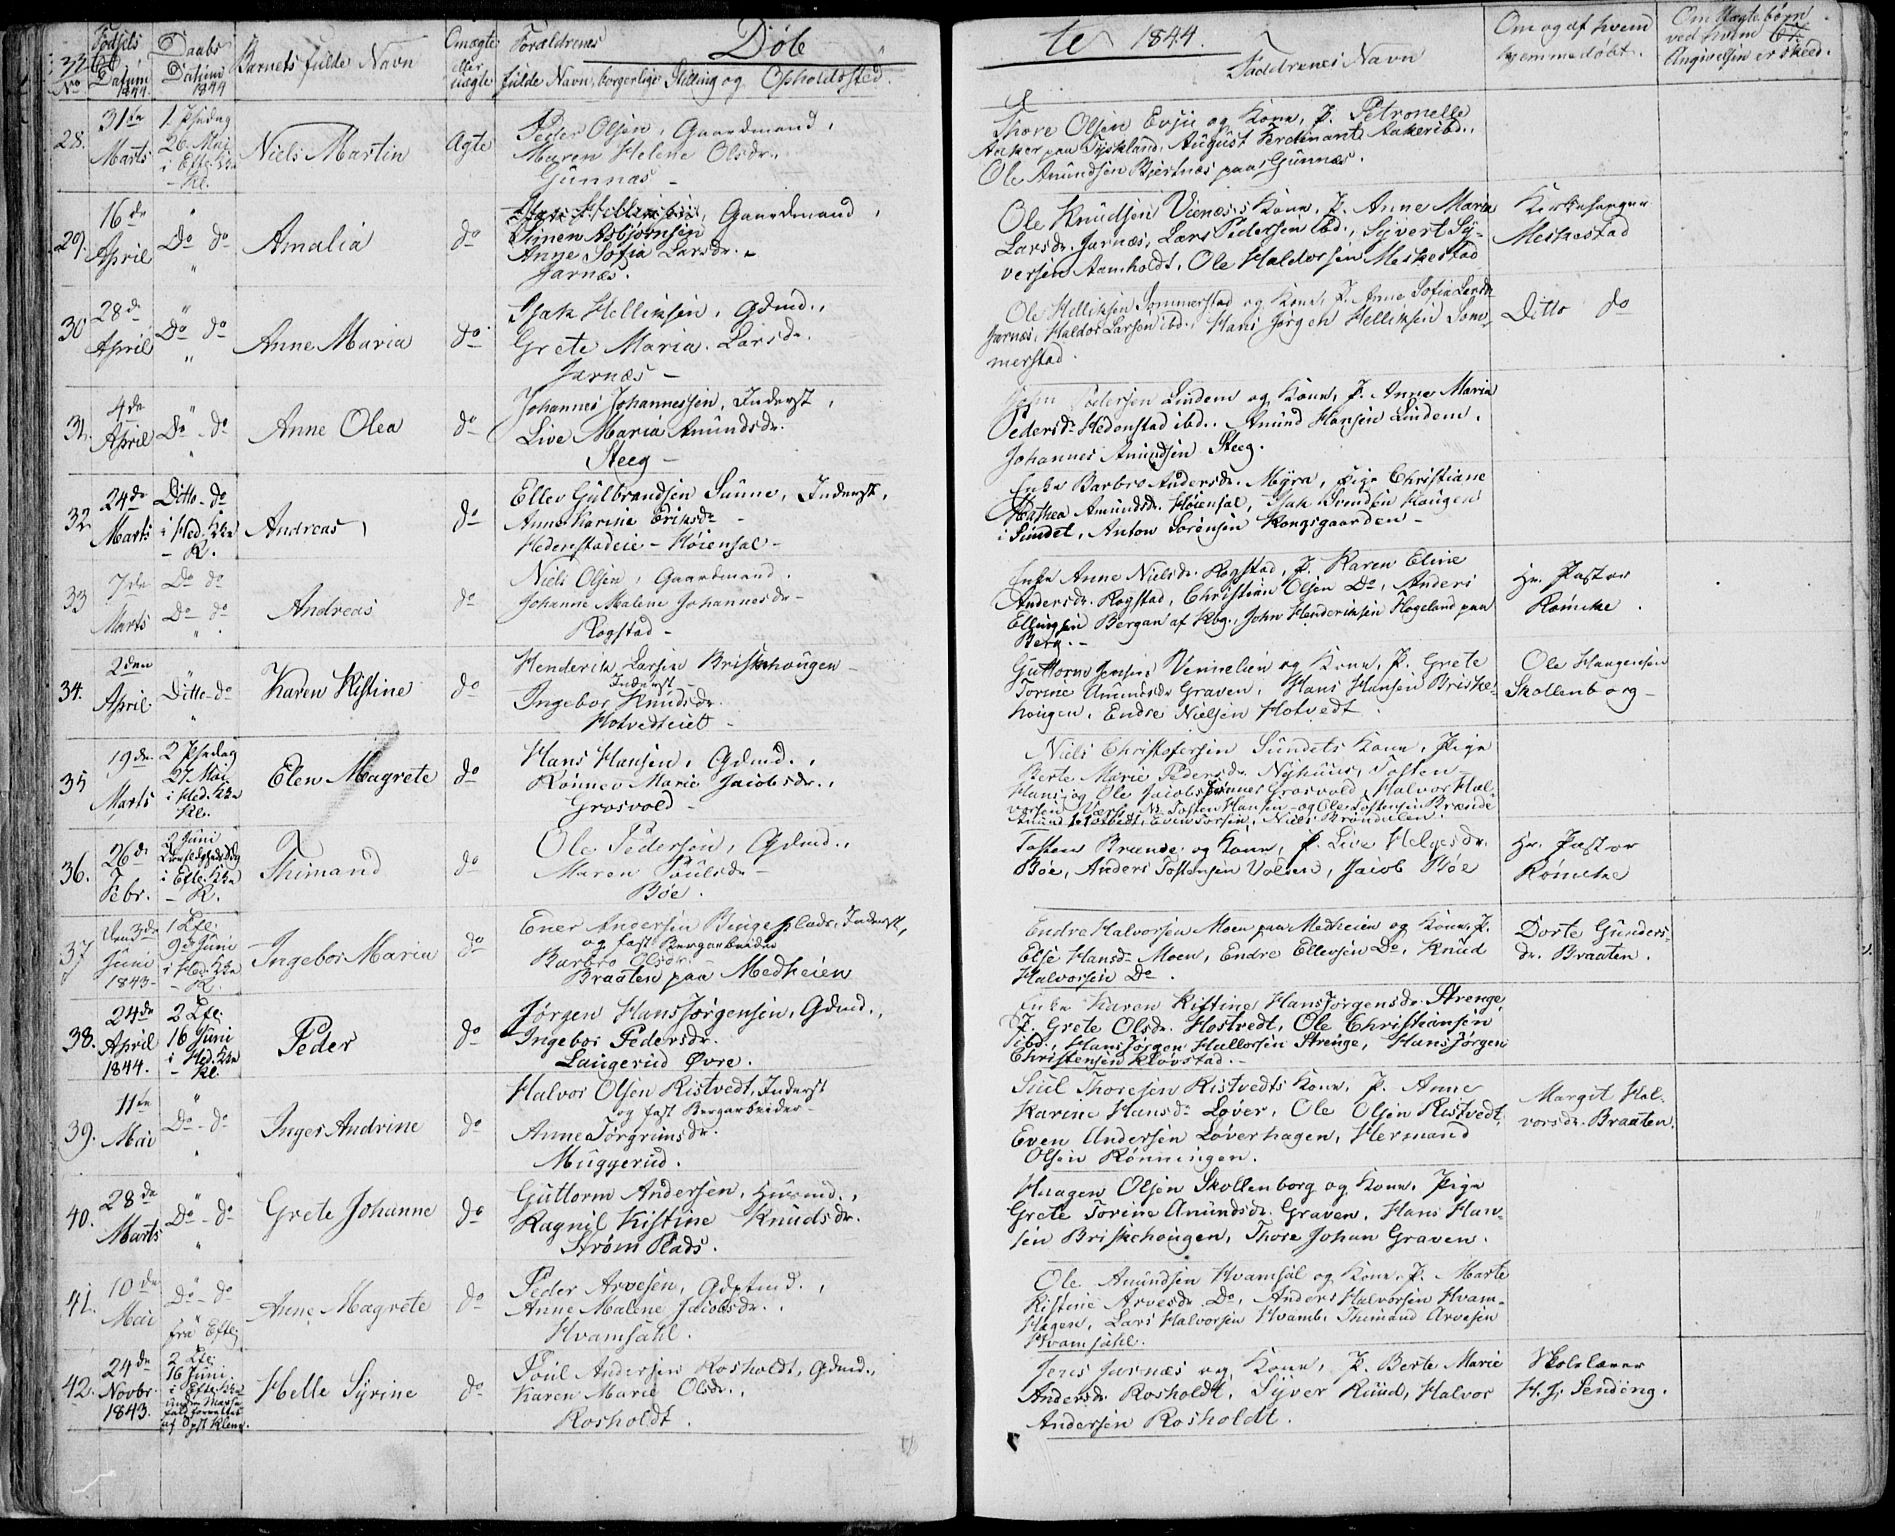 Døbte 1844.
No
Fødsels Datum 1844.
Daabs Datum 1844
Barnets fulde Navn
Om ægte eller uægte
Forældrenes fulde Navn, borgerlige Stilling og Opholdssted.
Faddrenes Navn
Om og af hvem hjemmedøbt.
28.
31te Marts
26 Mai
Niels Martin
Ægte
Peder Olsen, Gaardmand,
Maren Helene Olsdr.,
Gunnæs –
Thore Olsen Evju og Kone, P. Petronelle
Ole Amundsen Bjertnæs paa Gunnæs.
29.
16de April
Do do
Amalia
do
Gaardmand,
Simen Asbjørnsen
Anne Sofia Larsdr.
Jarnæs.
Ole Knudsen Vænæs's Kone, P. Anne Maria
Larsdr. Jarnæs, Lars Pedersen ibd., Syvert Sy-
versen Aamholdt, Ole Haldorsen Meskestad
Kirkesanger
Meskestad
30
28de April
Do do
Anne Maria
do
Isak Helliksen, Gdmd.,
Grete Maria Larsdr.
Jarnæs –
Ole Helliksen Sommerstad og Kone, P. Anne Sofia Larsdr.
Jarnæs, Haldor Larsen ibd., Hans Jørgen Helliksen Som-
merstad.
Ditto do
31.
4de April
Do do
Anne Olea
do
Johannes Johannessen, Inderst,
Live Maria Amundsdr.
Steeg –
John Pedersen Lindem og Kone, P. Anne Maria
Pedersdr. Hedenstad ibd., Amund Hansen Lindem,
Johannes Amundsen Steeg.
32
24de Marts
Ditto do
i Hed. Kke
– K.
Andreas
do
Ellev Gulbrandsen Sunne, Inderst,
Anne Karine Eriksdr. –
Hedenstadeie – Høiensal –
Enke Barbro Andersdr. Myra, Pige Christiane
Mathea Amundsdr. Høiensal, Isak Svendsen Haugen
i Sundet, Anton Sørensen Kongsgaarden –
33
7de Marts
Do do
Do do
Andreas
do
Niels Olsen, Gaardmand.
Johanne Malene Johannesdr –
Rogstad –
Enke Anne Nielsdr. Rogstad, P. Karen Eline
Andersdr. Rogstad, Christian Olsen Do, Anders
Ellingsen Bergan af Kbg., John Henderiksen Hogeland paa
Berg. –
Hr. Pastor
Rømcke.
34.
2den April
Ditto do
Karen Kistine
do
Henderik Larsen Briskehougen –
Inderst –
Ingebor Knudsdr.
Hotvedteiet –
Guttorm Jensen Vennelien og Kone, P. Grete
Torine Amundsdr Graven, Hans Hansen Briske-
hougen, Endre Nielsen Hotvedt.
Ole Haugensen
Skollenborg –
35
19de Marts
27 Mai
i Hed. Kke
Kl.
Elen Magrete
do
Hans Hansen, Gdmd.,
Rønnev Marie Jacobsdr.,
Grosvold –
Niels Christofersen Sundets Kone, Pige
Berte Marie Pedersdr. Nyhuus, Tosten
36.
26de Febr.
2 Juni
i Efte. Kke
– K.
Thimand
do
Ole Pedersen, Gdmd.,
Maren Poulsdr –
Bøe.
Tosten Brænde og Kone, P. Live Helgesdr.
Bøe, Anders Tostensen Volden, Jacob Bøe
Hr. Pastor
Rømcke
37
Juni
1843 –
9de Juni
i Hed. Kke
– K.
Ingebor Maria
do
Ener Andersen Bingeplads, Inderst,
og fast Bergarbeider
Barbro Olsdr. –
Braaten paa Medheien
Endre Halvorsen Moen paa Medheien og Kone, P.
Else Hansdr. Moen, Endre Ellevsen Do, Knud
Halvorsen Do.
Dorte Gunders-
dr. Braaten.
38.
24de April
1844.
16 Juni
i Hed. Kke
– Kl.
Peder
do
Jørgen Hans Jørgensen, Gdmd.,
Ingebor Pedersdr.
Laugerud Øvre.
Enke Karen Kistine Hans Jørgensdr. Strenge,
P. Grete Olsdr. Hostvedt, Ole Christiansen
ibd., Hans Jørgen Hallorsen Strenge, Hans Jørgen
Christensen Kløvstad. –
39.
11te Mai
Do do
Inger Andrine
do
Halvor Olsen Ristvedt, Inderst
og fast Bergarbeider –
Anne Torgrimsdr.
Muggerud.
Juul Thoresen Ristvedts Kone, P. Anne
Karine Hansdr. Løver, Ole Olsen Ristvedt,
Even Andersen Løverhagen, Hermand
Olsen Rønningen.
Margit Hal-
vorsdr. Braaten.
40.
28de Marts
Do do
Grete Johanne
do
Guttorm Andersen, Husmd.,
Ragnil Kistine Knudsdr.
Strøm Plads.
Haagen Olsen Skollenborg og Kone, Pige
Grete Torine Amundsdr. Graven, Hans Han-
sen Briskehougen, Thore Johan Graven.
41.
10de Mai
Do do
fra Efte.
Anne Magrete
do
Peder Arvesen, Gdptmd.,
Anne Malene Jacobsdr.,
Hvamsahl.
Ole Amundsen Hvamsal og Kone, P. Marte
Kistine Arvesdr. Do, Anders Halvorsen Hvam-
Hagen, Lars Halvorsen Hvamb, Thimand Arvesen
Hvamsahl.
42.
24de Novbr.
1843.
16 Juni
i Efte. Kke
Helle Syrine
do
Poul Andersen Rosholdt, Gdmd.,
Karen Marie Olsdr.,
Rosholdt.
Jens Jarnæs og Kone, P. Berte Marie
Andersdr. Rosholdt, Syver Ruud, Halvor
Andersen Rosholdt.
Skolelærer
H. J. Sendeng.